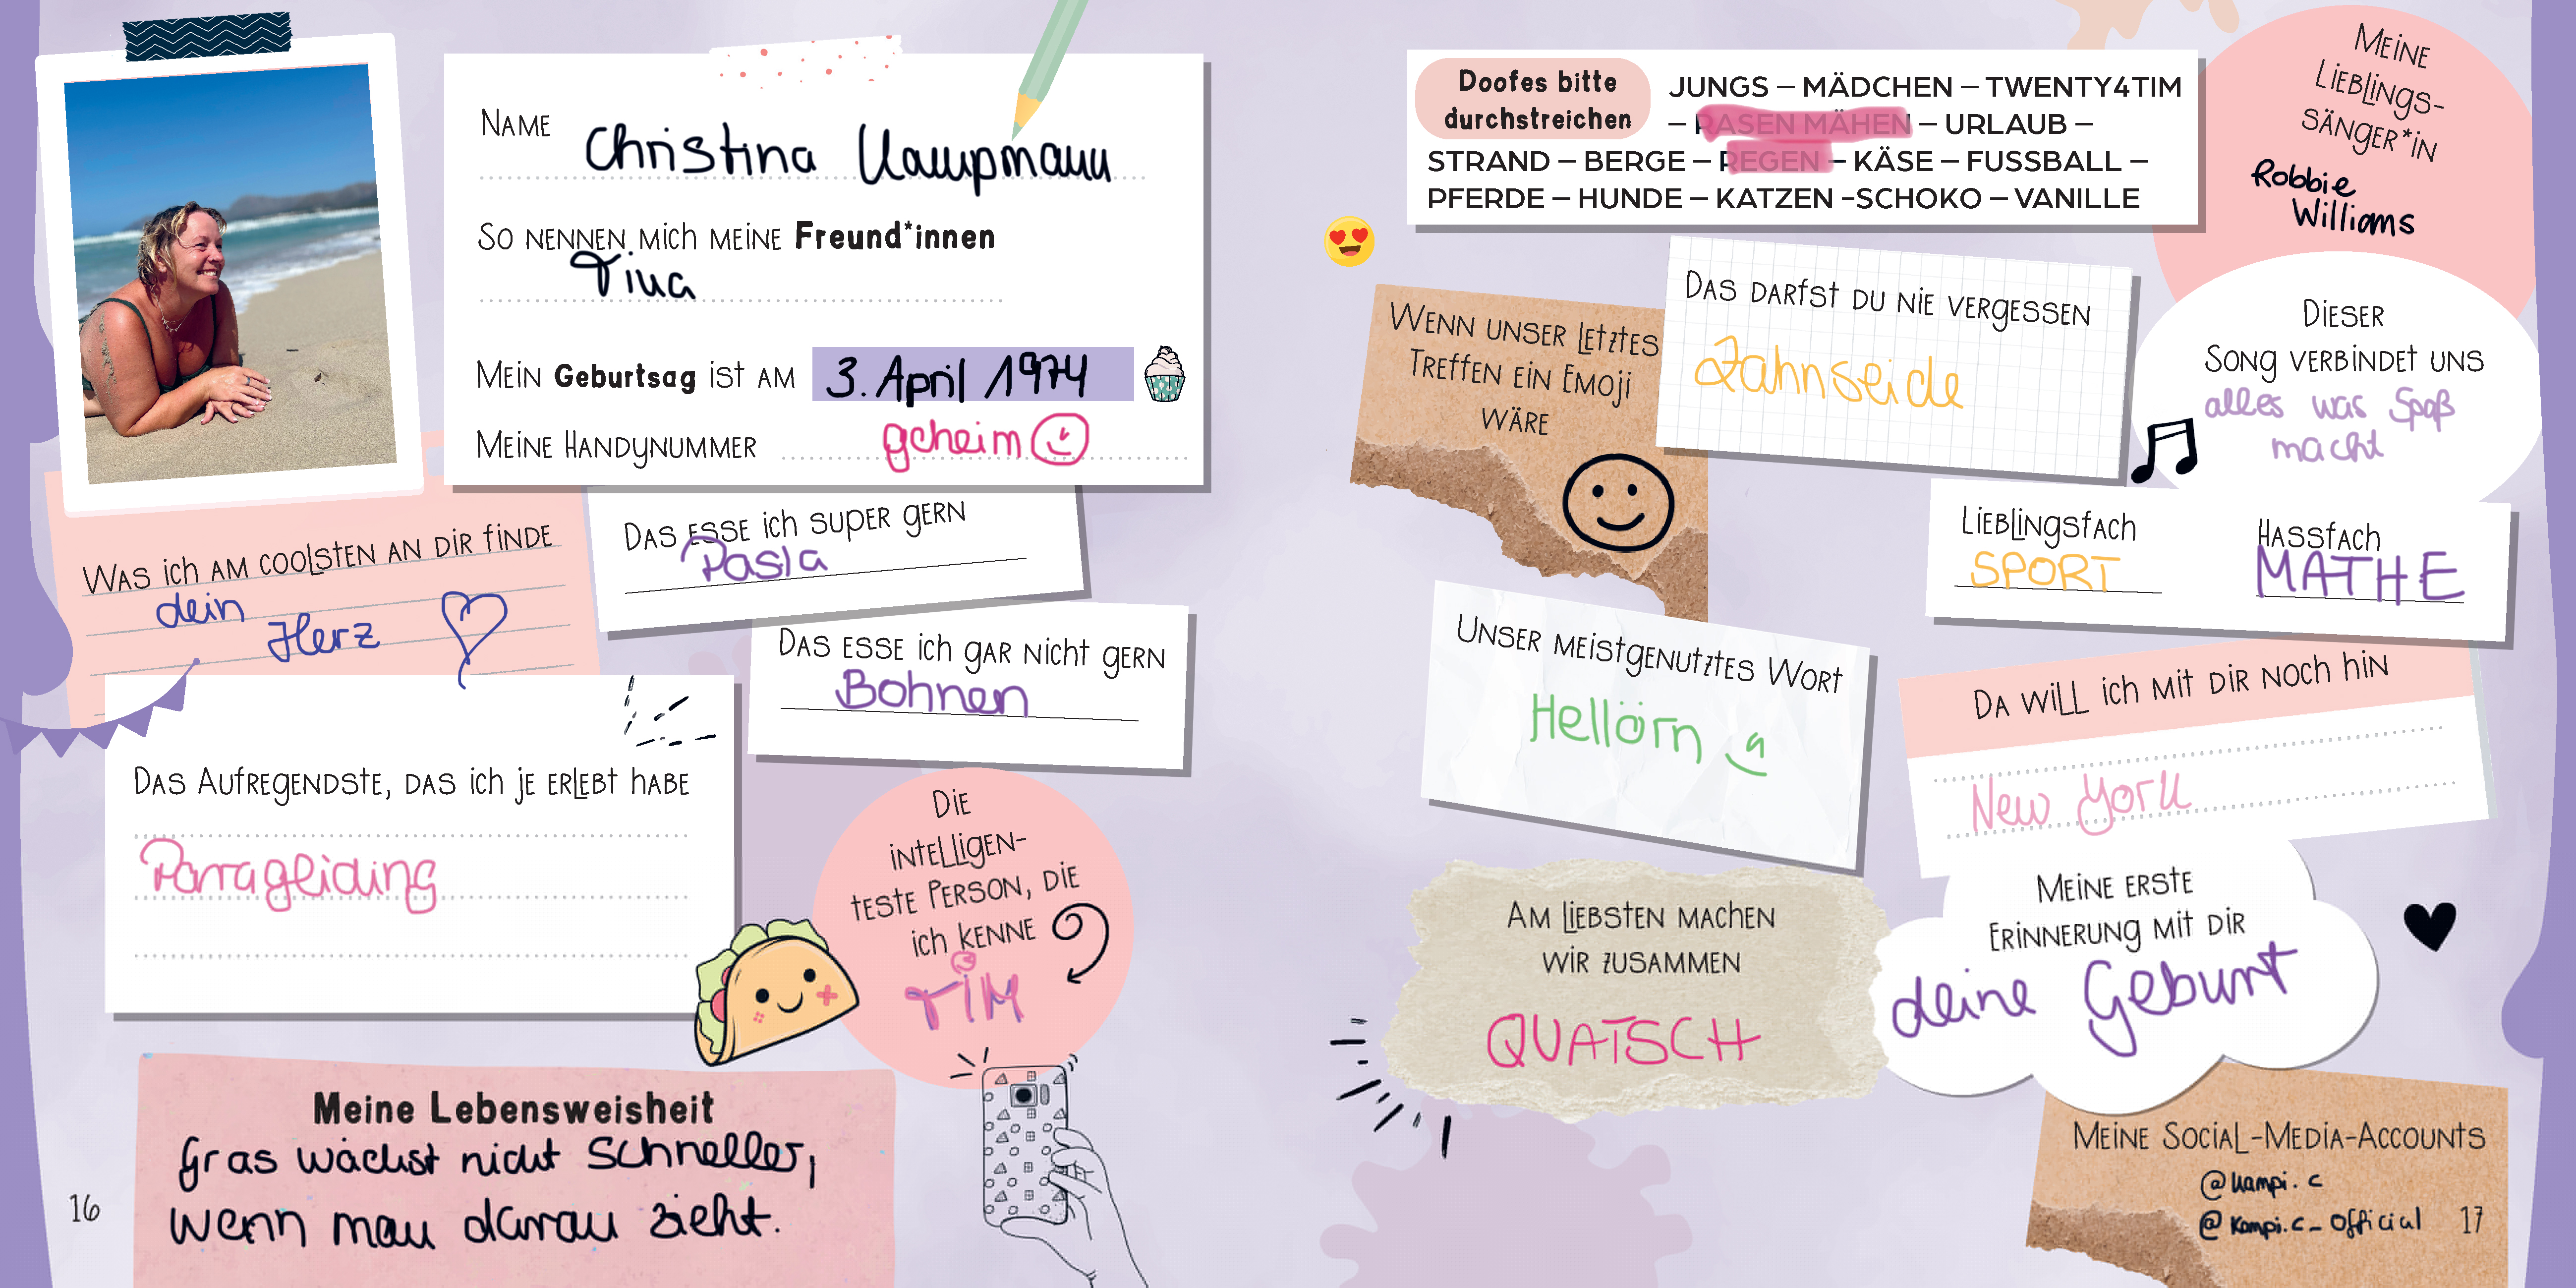 NAME Christina Kampmann
SO NENNEN MICH MEINE Freund*innen
Tina
MEIN Geburtsag IST AM 3. April 1974
MEINE HANDYNUMMER geheim
WAS ICH AM COOLSTEN AN DIR FINDE
dein
Herz
DAS ESSE ICH SUPER GERN
Pasta
DAS ESSE ICH GAR NICHT GERN
Bohnen
DAS AUFREGENDSTE, DAS ICH JE ERLEBT HABE
Parragliding
DIE
INTELLIGEN-
TESTE PERSON, DIE
ICH KENNE
TIM
Meine Lebensweisheit
Gras wächst nicht schneller,
wenn man daran zieht.
16
Doofes bitte
durchstreichen
JUNGS – MÄDCHEN – TWENTY4TIM
– RASEN MÄHEN – URLAUB –
STRAND – BERGE – REGEN – KÄSE – FUSSBALL –
PFERDE – HUNDE – KATZEN –SCHOKO – VANILLE
MEINE
LIEBLINGS-
SÄNGER*IN
Robbie
Williams
WENN UNSER LETZTES
TREFFEN EIN EMOJI
WÄRE
DAS DARFST DU NIE VERGESSEN
Zahnseide
DIESER
SONG VERBINDET UNS
alles was Spaß
macht
LIEBLINGSFACH
SPORT
HASSFACH
MATHE
UNSER MEISTGENUTZTES WORT
Hellörn
DA WILL ICH MIT DIR NOCH HIN
New York
AM LIEBSTEN MACHEN
WIR ZUSAMMEN
QUATSCH
MEINE ERSTE
ERINNERUNG MIT DIR
deine Geburt
MEINE SOCIAL-MEDIA-ACCOUNTS
@kampi.c
@kampi.c_official
17